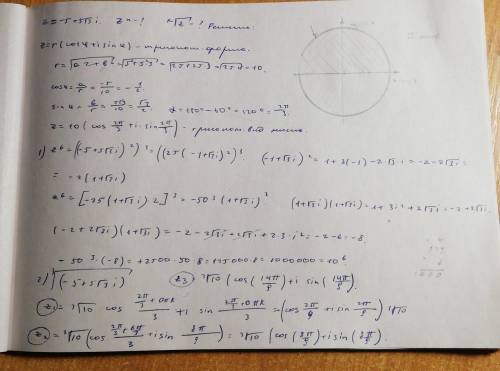 z = -5+5√3i. z^6 - ? ³√z - ? Решение:
z = r(cosφ + i sinφ) - тригоном. форма.
r = √a²+b² = √5²+5²·3 = √25+25·3 = √25·4 = 10.
cosφ = a/r = -5/10 = -1/2
sinφ = b/r = 5√3/10 = √3/2 = 120° = 2π/3.
z = 10(cos 2π/3 + i·sin 2π/3) - тригоном. вид числа.
1) z^6 = ((-5+5√3i)²)³ = ((25(-1+√3i)²)³. (-1+√3i)² = 1+3(-1)-2√3i = -2-2√3i =
= -2(1+√3i)
z^6 = [-25(1+√3i)·2]³ = -50³(1+√3i)³ (1+√3i)(1+√3i) = 1+3i²+2√3i = -2+2√3i.
(-2+2√3i)(1+√3i) = -2-2√3i+2√3i+2·3·i² = -2-6 = -8.
-50³·(-8) = +2500·50·8 = 125000·8 = 1000000 = 10^6
2) ³√(-5+5√3i) z3 = ³√10(cos(14π/9)+i sin(14π/9).
z1 = ³√10 cos (2π/3+0πk)/3 + i sin (2π/3+0πk)/3 = (cos 2π/9 + i sin 2π/9) ³√10
z2 = ³√10(cos (2π/3+6π/3)/3 + i sin 8π/9) = ³√10(cos(8π/9)+i sin(8π/9).